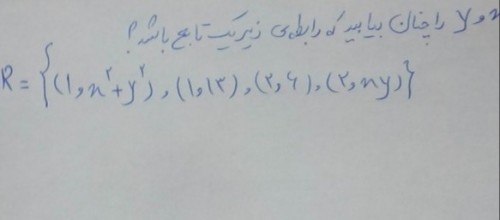 x و y را چنان بیابید که رابطه‌ی زیر یک تابع باشد؟
R = {(۱, x² + y²), (۱, ۱۳), (۲, ۶), (۲, xy)}